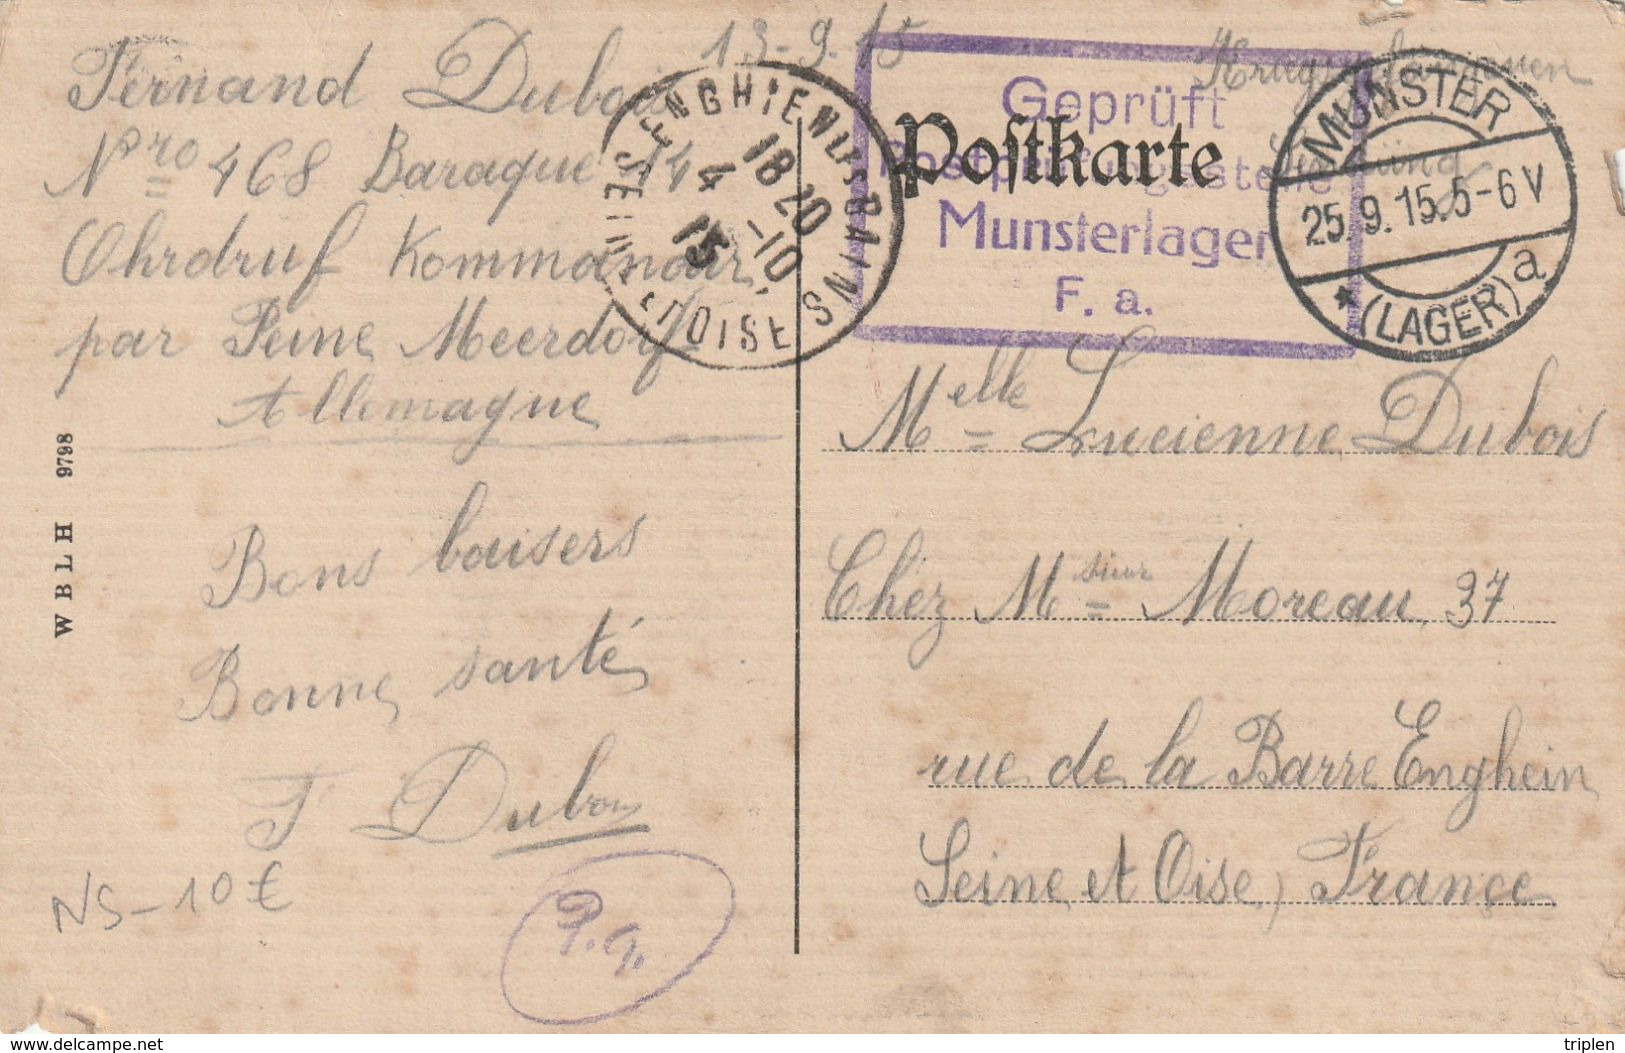 Fernand Dubois 13-9.15
Nro 468 Baraque 14
Ohrdruf Kommandour
par Peine Meerdorf
Allemagne
Bons baisers
Bonne santé
F Dubois
P.g.
NS-10€
W B L H 9798
ENGHIEN LES BAINS
18 20
4 -10
15
SEINE-ET-OISE
Geprüft
Postprüfungsstelle
Munsterlager
F. a.
Postkarte
Kriegsgefangenen
Sendung
MUNSTER
25.9.15.5-6V
*(LAGER) a
Melle Lucienne Dubois
Chez Msieur Moreau, 37
rue de la Barre Enghein
Seine et Oise, France
delcampe.net
triplen